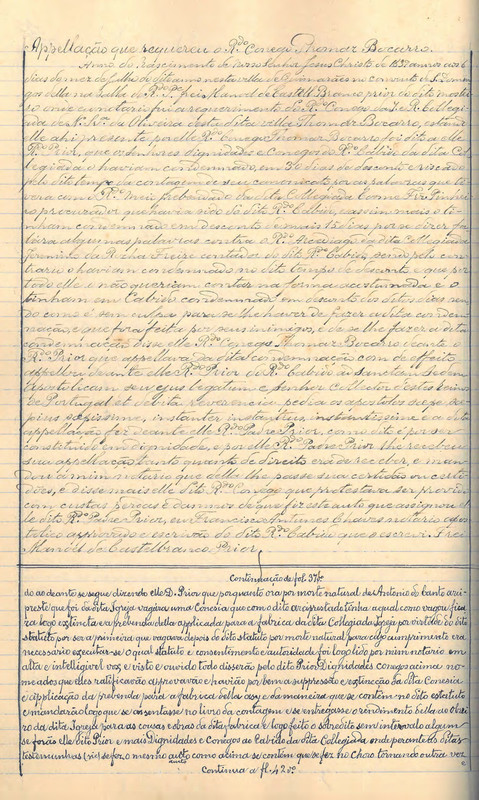 Appellação que requereu o R.do Conego Thomaz Bocarro.
Anno do nascimento de nosso Senhor Jesus Christo de
dias do mez de Julho do dito anno nesta villa de Guimarães no convento de S. Domin
gos della na do R.do P.e frei Manoel de Castel Branco prior do dito mostei
ro onde eu notario fui a requerimento do R.do Conego da R. Collegia
da de N. Sr.a da Oliveira desta dita villa Thomaz Bocarro, estan
do elle ahi presente, por elle R.do Conego Thomaz Bocarro foi dito a elle
R.do Prior, que os senhores dignidades e Conegos do R.do Cabido da dita Col
legiada o haviam condemnado em 30 dias de desconto e riscado
pelo dito tempo da contagem de seu canonicato por as palavras que ti
vera com o R.do meio prebendado da dita Collegiada Cosme Pinhei
ro procurador que havia sido do dito R.do Cabido, e assim mais o ti
nham condemnado em desconto de mais 15 dias por se dizer fa
lára algumas palavras contra o R.do Arcediago da dita Collegiada
Jeronimo da Rocha Freire contador do dito R.do Cabido e
o haviam condemnado no dito tempo de desconto e que por
todo elle o não queriam contar na forma acostumada e o
tinham em Cabido condemnado em desconto dos ditos dias sen
do como é sem culpa para se lhe haver de fazer a dita condem
nação, e que fora feita por seus inimigos, e de se lhe fazer a dita
condemnação disse elle R.do Conego Thomaz Bocarro deante o
R.do Prior que appellava da dita condemnação com de effeito
appellou perante elle R.do Prior do R.do Cabido ad Sanctam Sedem
Apostolicam seu ejus legatum e Senhor Collector destes Reinos
de Portugal et debita reverencia pedia os apostolos sepe, se
pius sepissime, instanter instantius, instantissime e a dita
appellação foi deante elle R.do Padre Prior, como dito é por ser
constituido em dignidade, e por elle R.do Padre Prior lhe recebeu
sua appellação tanto quanto de direito era de receber, e man
dou a mim notario que della lhe passe sua certidão ou certi
dões, e disse mais elle dito R.do Conego que protestava ser provido
com custas percas e damnos de que fiz este auto que assignou el
le dito R.do Padre Prior, eu Francisco Antunes Chaves notario apos
tolico approvado e escrivão do dito R.do Cabido que o escrevi. Frei
Manoel de Castelbranco, Prior
Continuação de fol. 37 v.
do ao deante se segue dizendo elle D. Prior que porquanto ora por morte natural de Antonio do Canto arci
preste que foi da dita Igreja vagára uma Conesia que com o dito arciprestado tinha a qual como vagou fica
ra logo extincta e a prebenda della applicada para a fabrica da dita Collegiada Igreja por virtude do dito
statuto por ser a primeira que vagara depois do dito statuto por morte natural para cujo cumprimento era
necessario executar-se o qual statuto e consentimento e autoridade foi logo lido por mim notario em
alta e intelligivel voz e visto e ouvido todo disserão pelo dito Prior Dignidades conegos acima no
meados que elles ratificação approvavão e havião por bem a suppressão e extincção da dita Conesia
e applicação da prebenda para a fabrica della assy e da maneira que se contém no dito estatuto
e mandarão logo que se assentasse no livro da contagem e se entregasse o rendimento della ao obrei
ro da dita Igreja para as cousas e obras da dita fabrica e logo feito o sobredito sem intervalo algum
se forão elle dito Prior e mais Dignidades e Conegos ao Cabido da dita Collegiada onde perante as ditas
testemunhas (sic) se fez o mesmo auto como acima se contém que se fez no Choro tornando outra vez
auto
Continua a fl. 42 v.